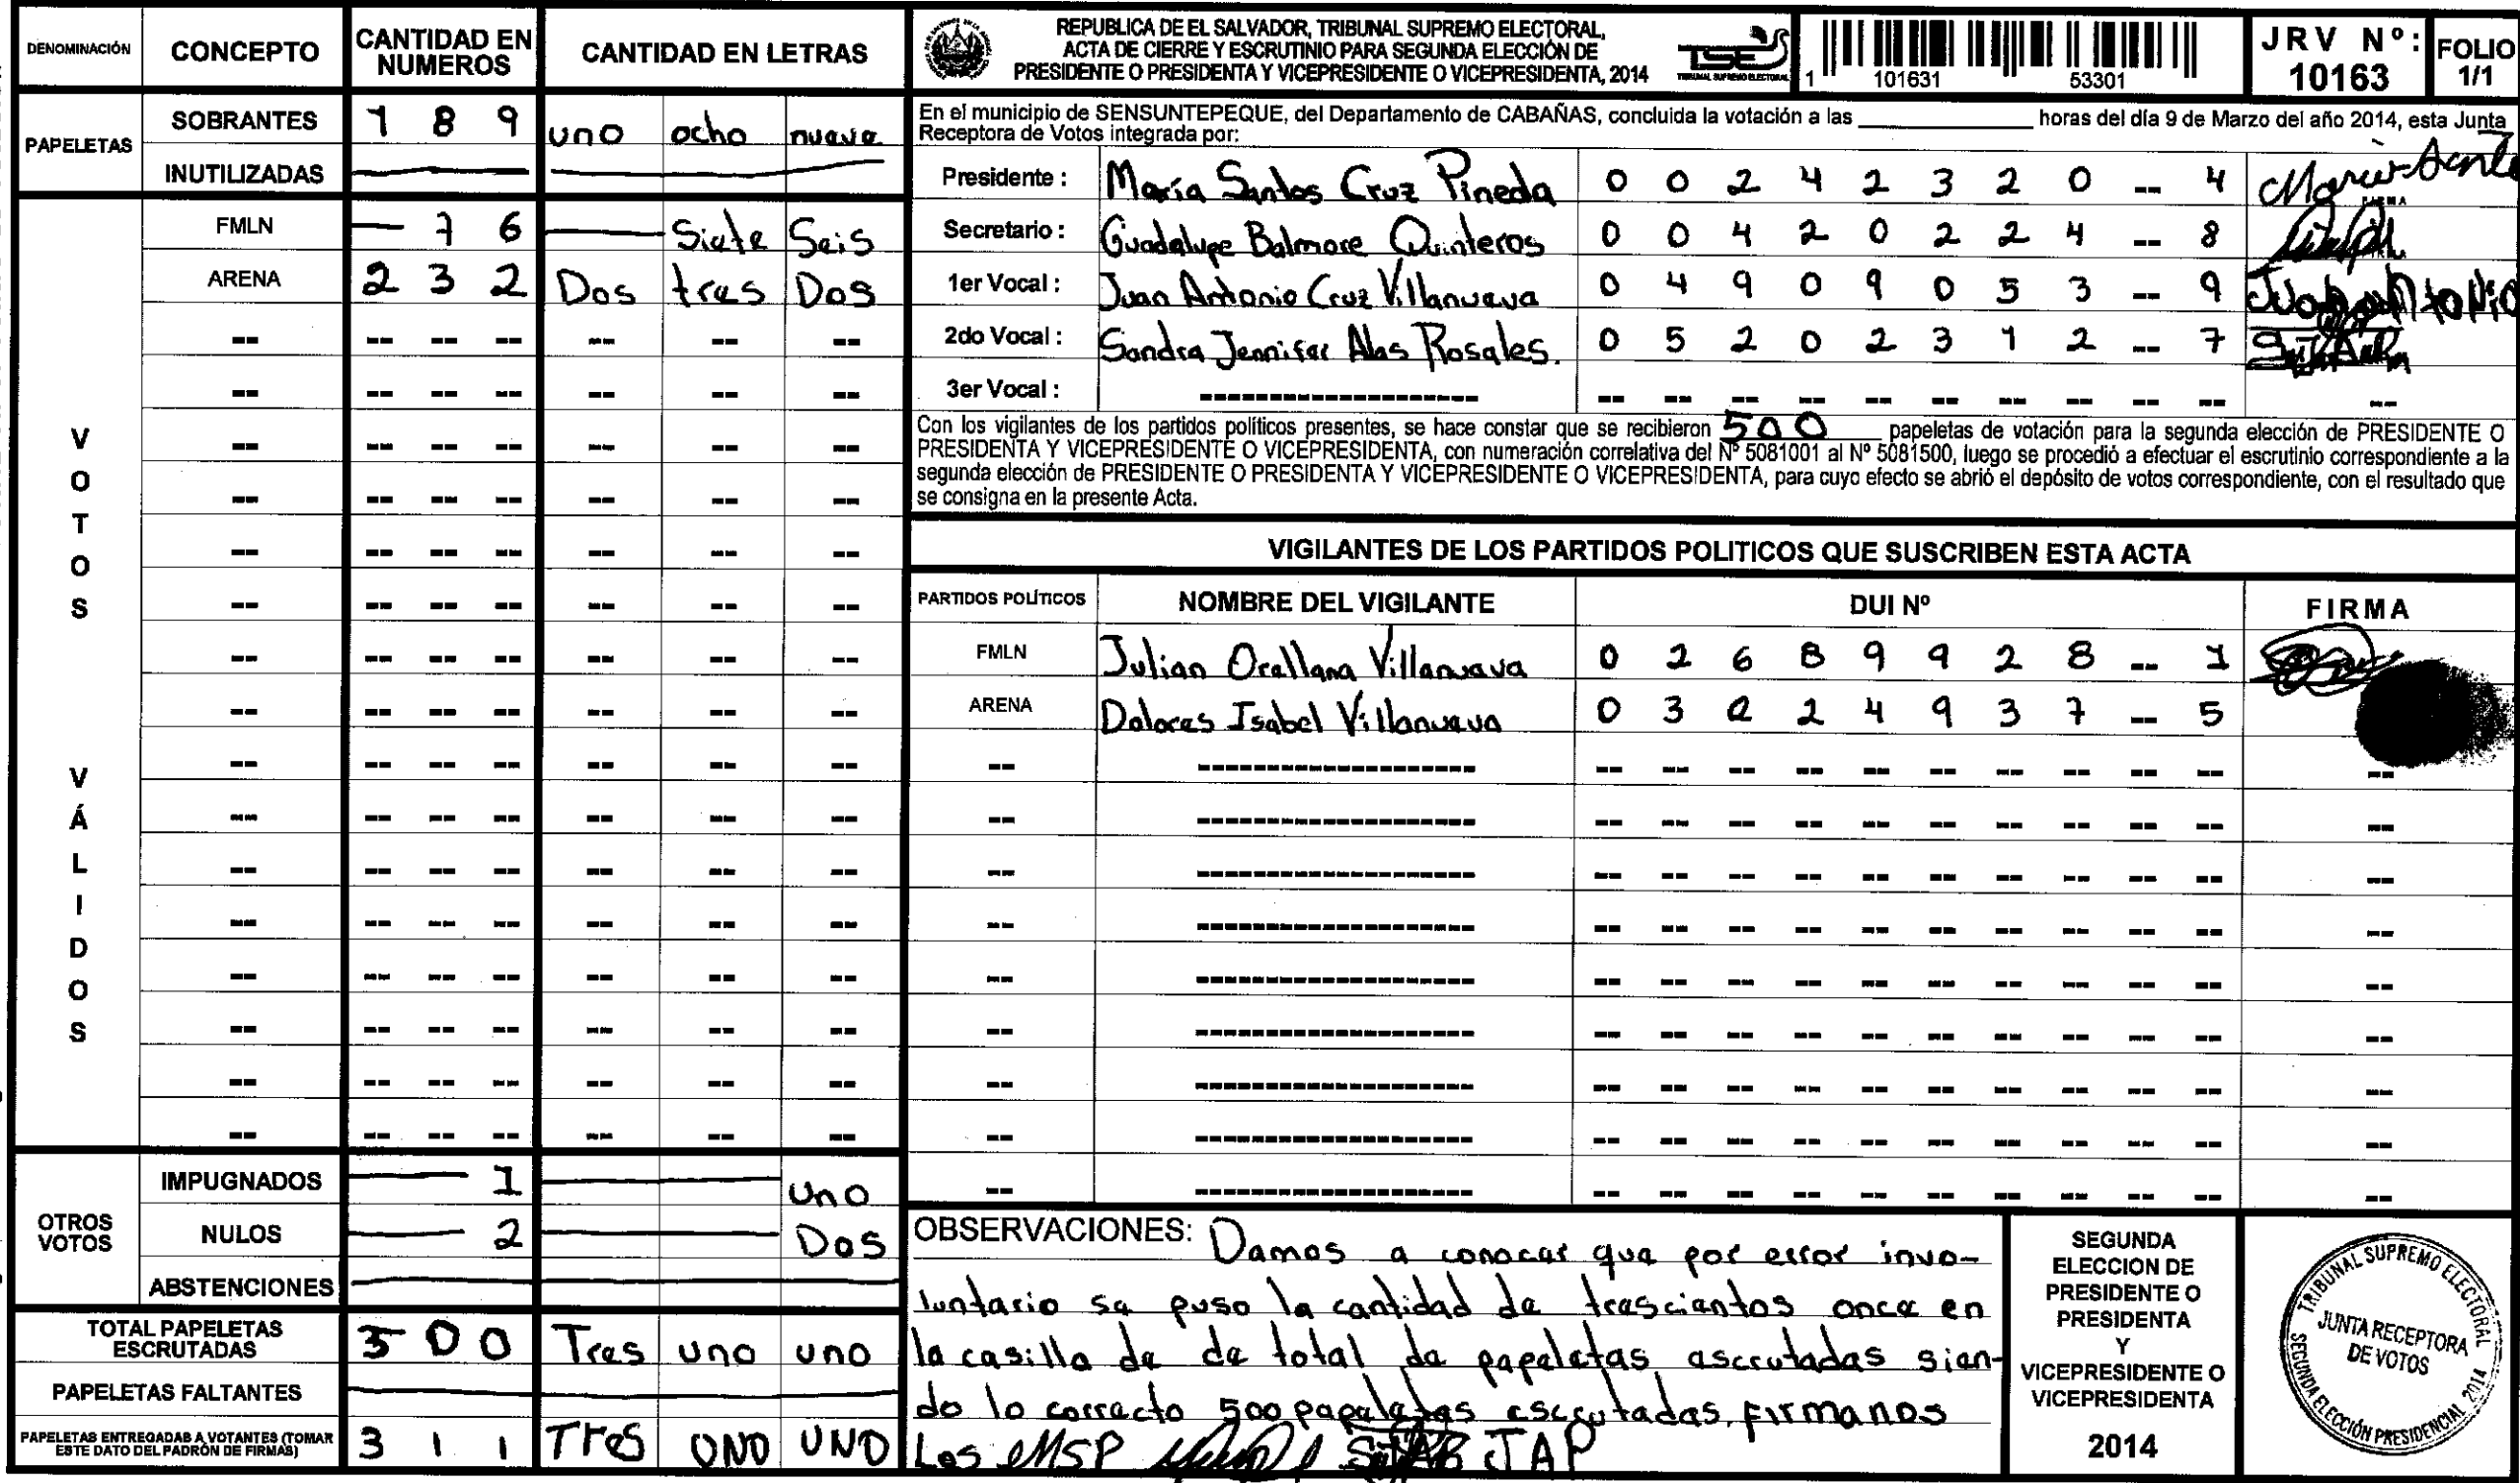 DENOMINACIÓN CONCEPTO CANTIDAD EN NUMEROS CANTIDAD EN LETRAS
PAPELETAS
SOBRANTES 1 8 9 uno ocho nueve
INUTILIZADAS
VOTOS VÁLIDOS
FMLN — 7 6 — Siete Seis
ARENA 2 3 2 Dos tres Dos
OTROS VOTOS
IMPUGNADOS — 1 — Uno
NULOS — 2 — Dos
ABSTENCIONES
TOTAL PAPELETAS ESCRUTADAS 500 Tres uno uno
PAPELETAS FALTANTES
PAPELETAS ENTREGADAS A VOTANTES (TOMAR ESTE DATO DEL PADRÓN DE FIRMAS) 3 1 1 Tres UNO UNO
REPUBLICA DE EL SALVADOR, TRIBUNAL SUPREMO ELECTORAL,
ACTA DE CIERRE Y ESCRUTINIO PARA SEGUNDA ELECCIÓN DE
PRESIDENTE O PRESIDENTA Y VICEPRESIDENTE O VICEPRESIDENTA, 2014
TSE
TRIBUNAL SUPREMO ELECTORAL
1 101631 53301
JRV Nº: 10163
FOLIO 1/1
En el municipio de SENSUNTEPEQUE, del Departamento de CABAÑAS, concluida la votación a las ________ horas del día 9 de Marzo del año 2014, esta Junta
Receptora de Votos integrada por:
Presidente : María Santos Cruz Pineda 0 0 2 4 2 3 2 0 -- 4
Secretario : Guadalupe Balmore Quinteros 0 0 4 2 0 2 2 4 -- 8
1er Vocal : Juan Antonio Cruz Villanueva 0 4 9 0 9 0 5 3 -- 9 Juan Antonio
2do Vocal : Sandra Jennifer Alas Rosales. 0 5 2 0 2 3 1 2 -- 7
3er Vocal :
Con los vigilantes de los partidos políticos presentes, se hace constar que se recibieron 500 papeletas de votación para la segunda elección de PRESIDENTE O
PRESIDENTA Y VICEPRESIDENTE O VICEPRESIDENTA, con numeración correlativa del Nº 5081001 al Nº 5081500, luego se procedió a efectuar el escrutinio correspondiente a la
segunda elección de PRESIDENTE O PRESIDENTA Y VICEPRESIDENTE O VICEPRESIDENTA, para cuyo efecto se abrió el depósito de votos correspondiente, con el resultado que
se consigna en la presente Acta.
VIGILANTES DE LOS PARTIDOS POLITICOS QUE SUSCRIBEN ESTA ACTA
PARTIDOS POLÍTICOS NOMBRE DEL VIGILANTE DUI Nº FIRMA
FMLN Julian Orellana Villanueva 0 2 6 8 9 9 2 8 -- 1
ARENA Dolores Isabel Villanueva 0 3 2 2 4 9 3 7 -- 5
OBSERVACIONES: Damos a conocer que por error invo-
luntario se puso la cantidad de trescientos once en
la casilla de de total de papeletas escrutadas sien-
do lo correcto 500 papeletas escrutadas, firmanos
Los MSP JAP
SEGUNDA
ELECCION DE
PRESIDENTE O
PRESIDENTA
Y
VICEPRESIDENTE O
VICEPRESIDENTA
2014
TRIBUNAL SUPREMO ELECTORAL
JUNTA RECEPTORA
DE VOTOS
SEGUNDA ELECCIÓN PRESIDENCIAL 2014